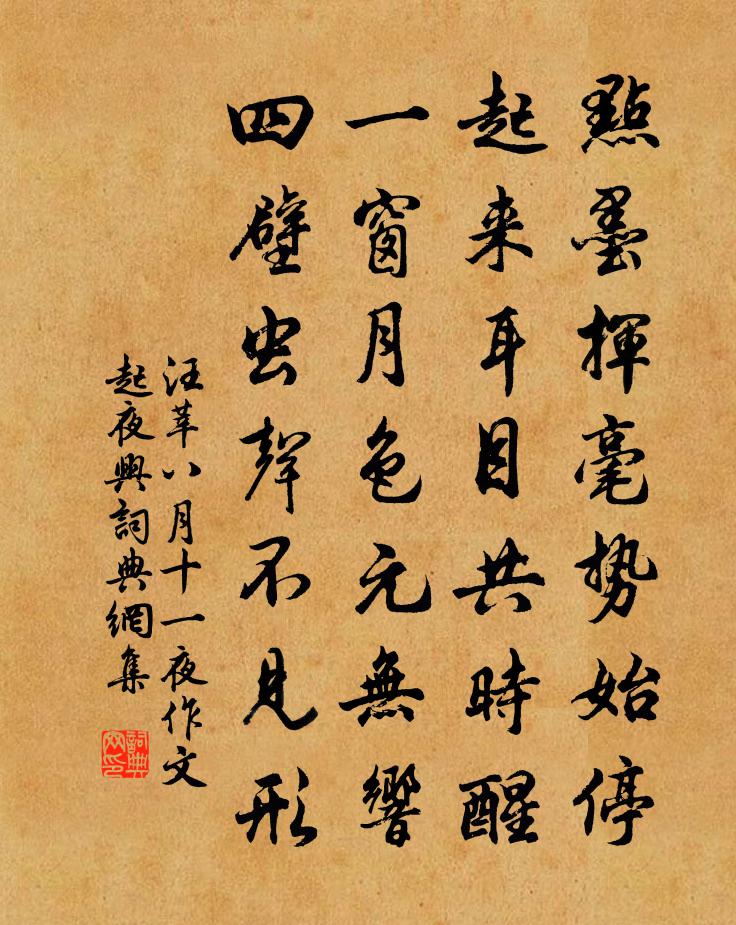 點墨揮毫势始停
起来耳目共時醒
一窗月色元無響
四壁虫聲不見形
汪莘八月十一夜作文
起夜興詞典網集
詞典網印